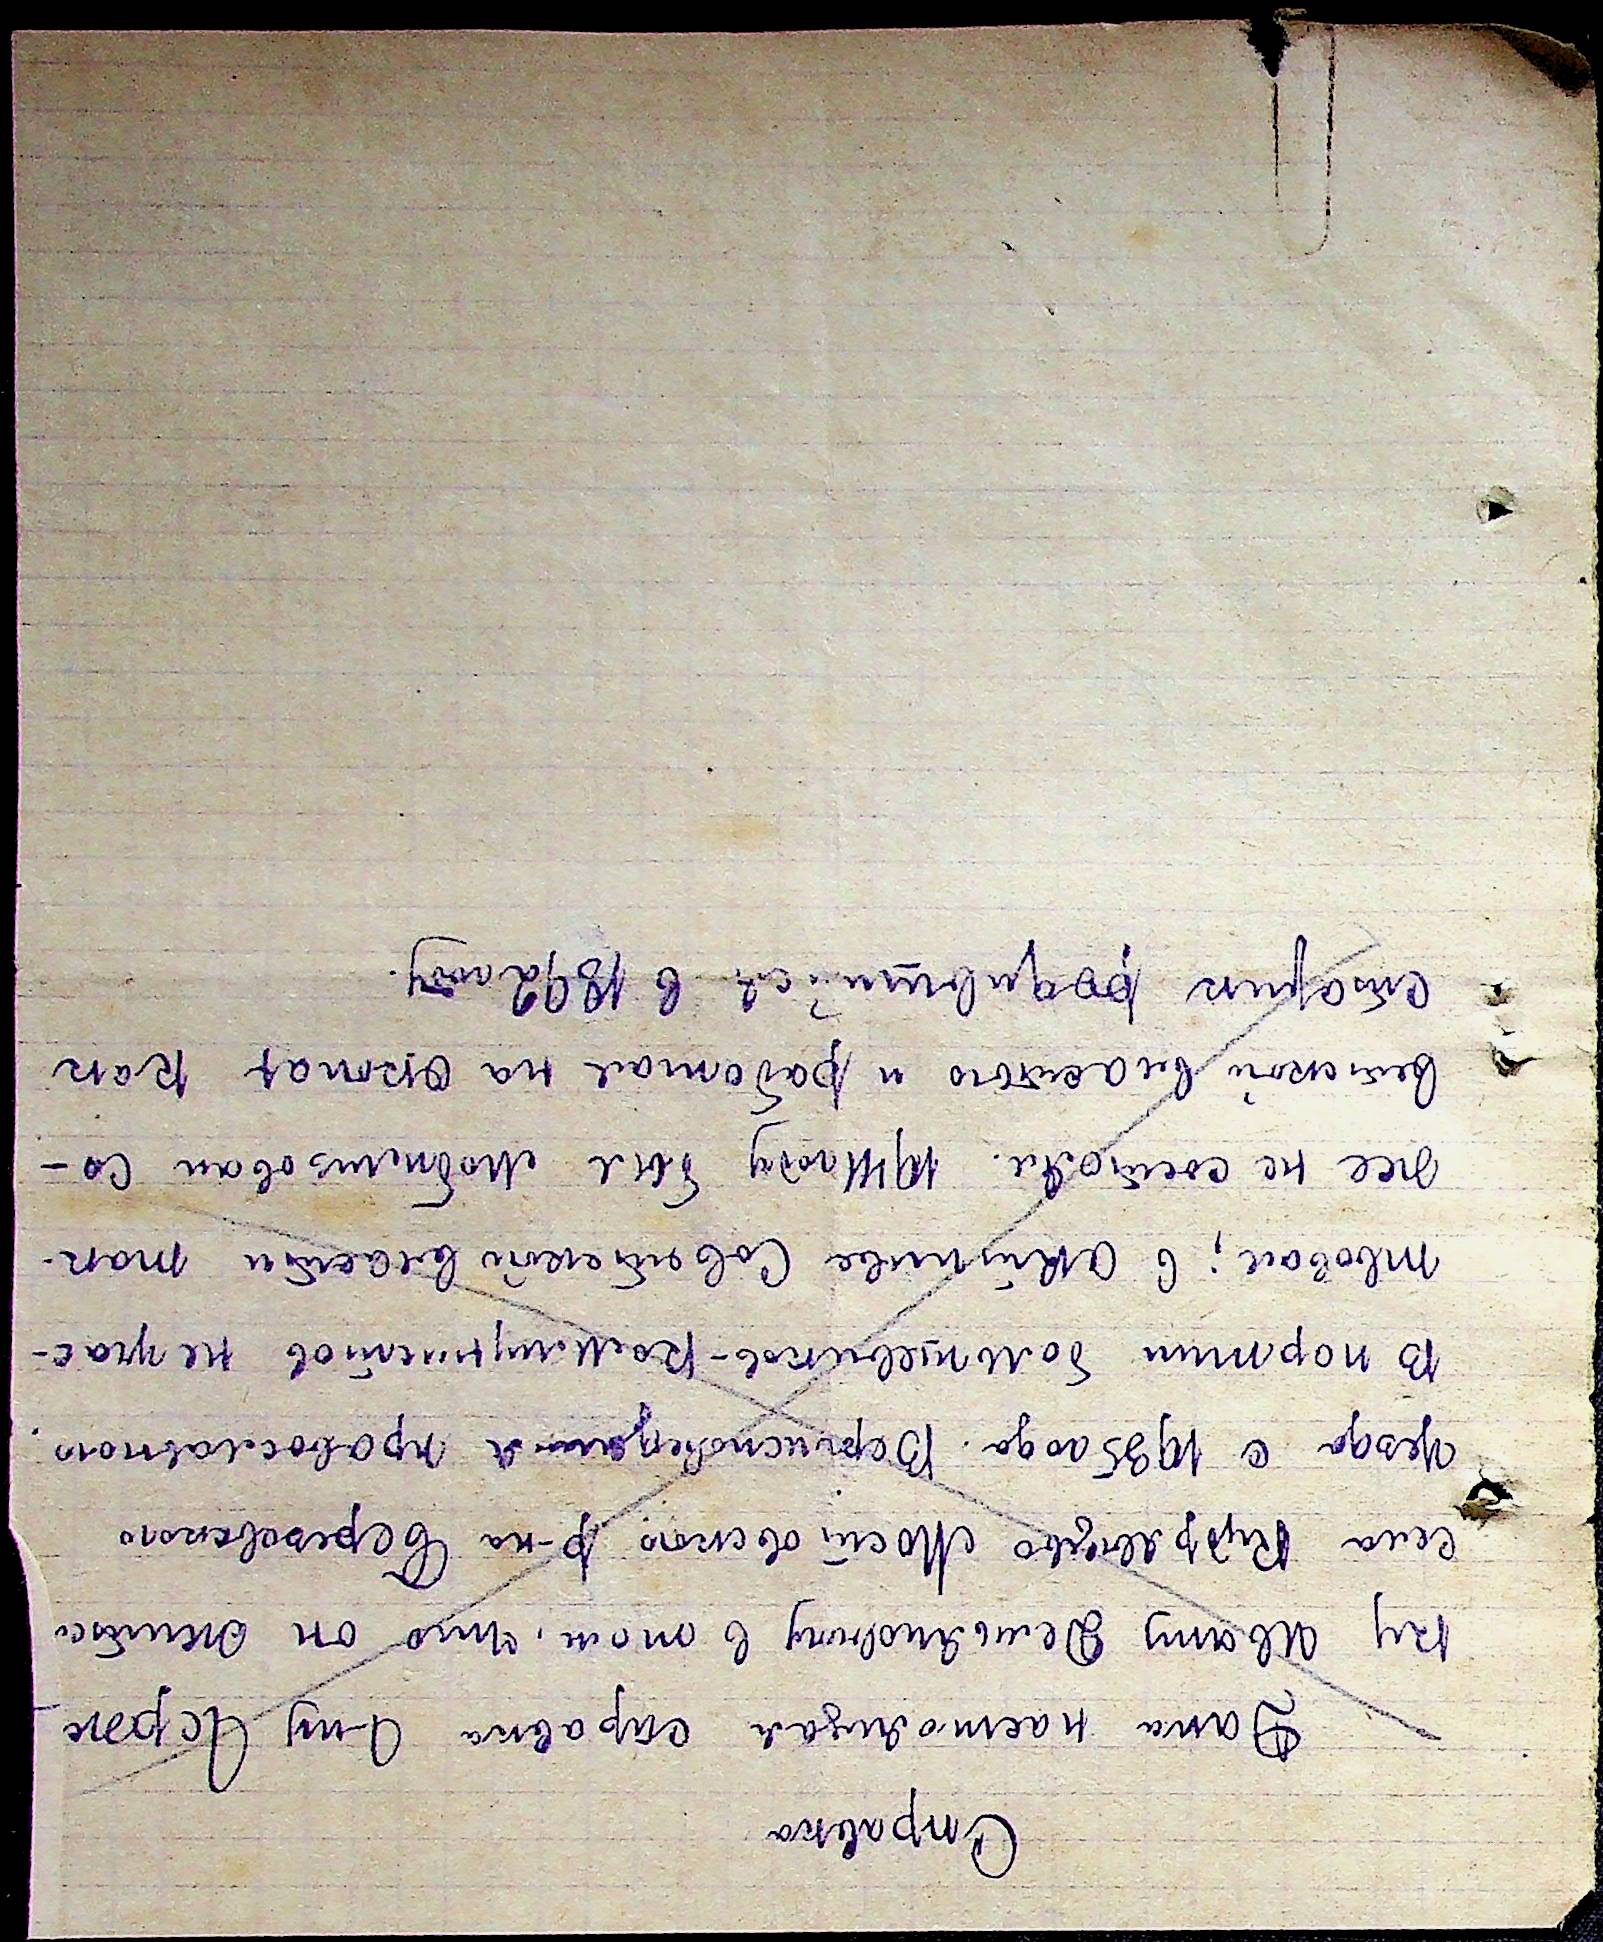 Справка
Дана настоящая справка г-ну Держ
ку Ивану Демьяновичу в том, что он житель
села Кудрявцево Мостовского р-на Березовского
уезда с 1935 года. Вероисповедания православного.
В партии большевиков-коммунистов не учас-
твовал; в активе Советской власти так-
же не состоял. 1941 году был мобилизован Со-
ветской властью и работал на окопах как
старик родившийся в 1892 году.